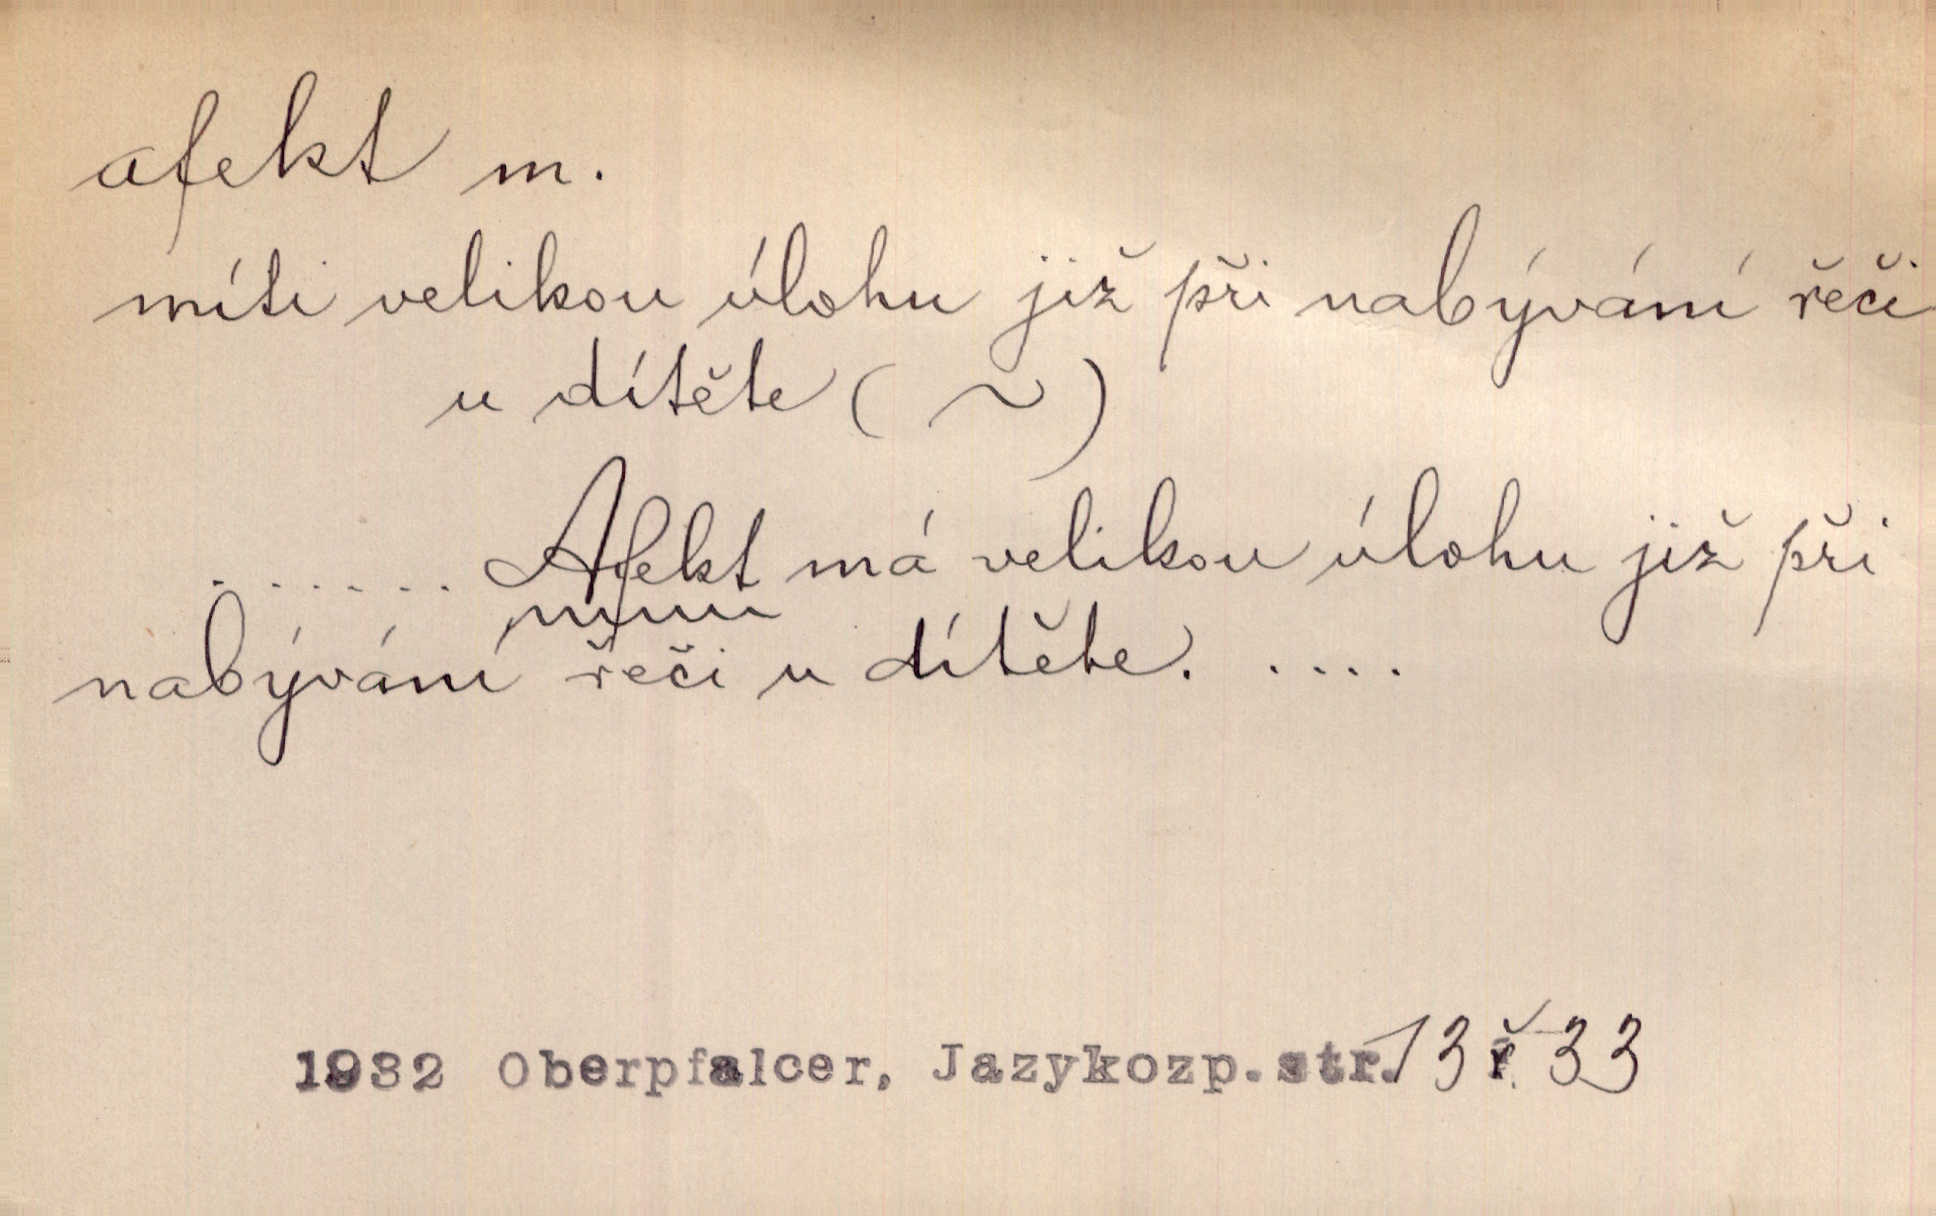 afekt m.
míti velikou úlohu již při nabývání řeči
u dítěte ( ~ )
...... Afekt má velikou úlohu již při
nabývání řeči u dítěte. ....
1932 Oberpfalcer, Jazykozp. str. 13 ř. 33